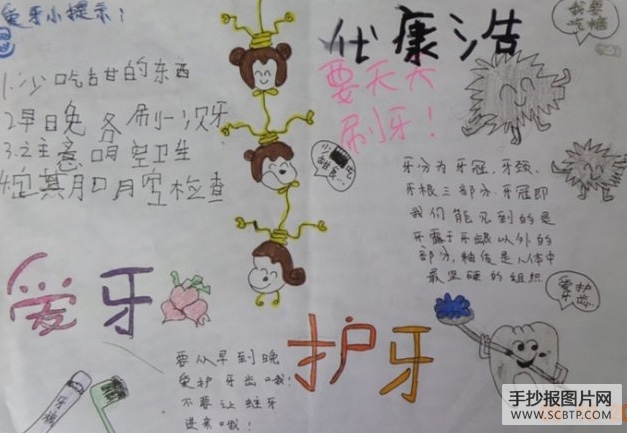 爱牙小提示：
1.少吃甜的东西
2.早晚各刷一次牙
3.注意口腔卫生
4.定其月口腔检查
代康浩
要天天
刷牙！
我要
吃糖
牙分为牙冠，牙颈，
牙根三部分.牙冠即
我们能见到的是
牙露于牙龈以外的
部分，釉质是人体中
最坚硬的组织
爱护
牙齿
爱牙
护牙
要从早到晚
爱护牙齿哦！
不要让蛀牙
进来哦！
牙膏
手抄报图片网
WWW.SCBTP.COM